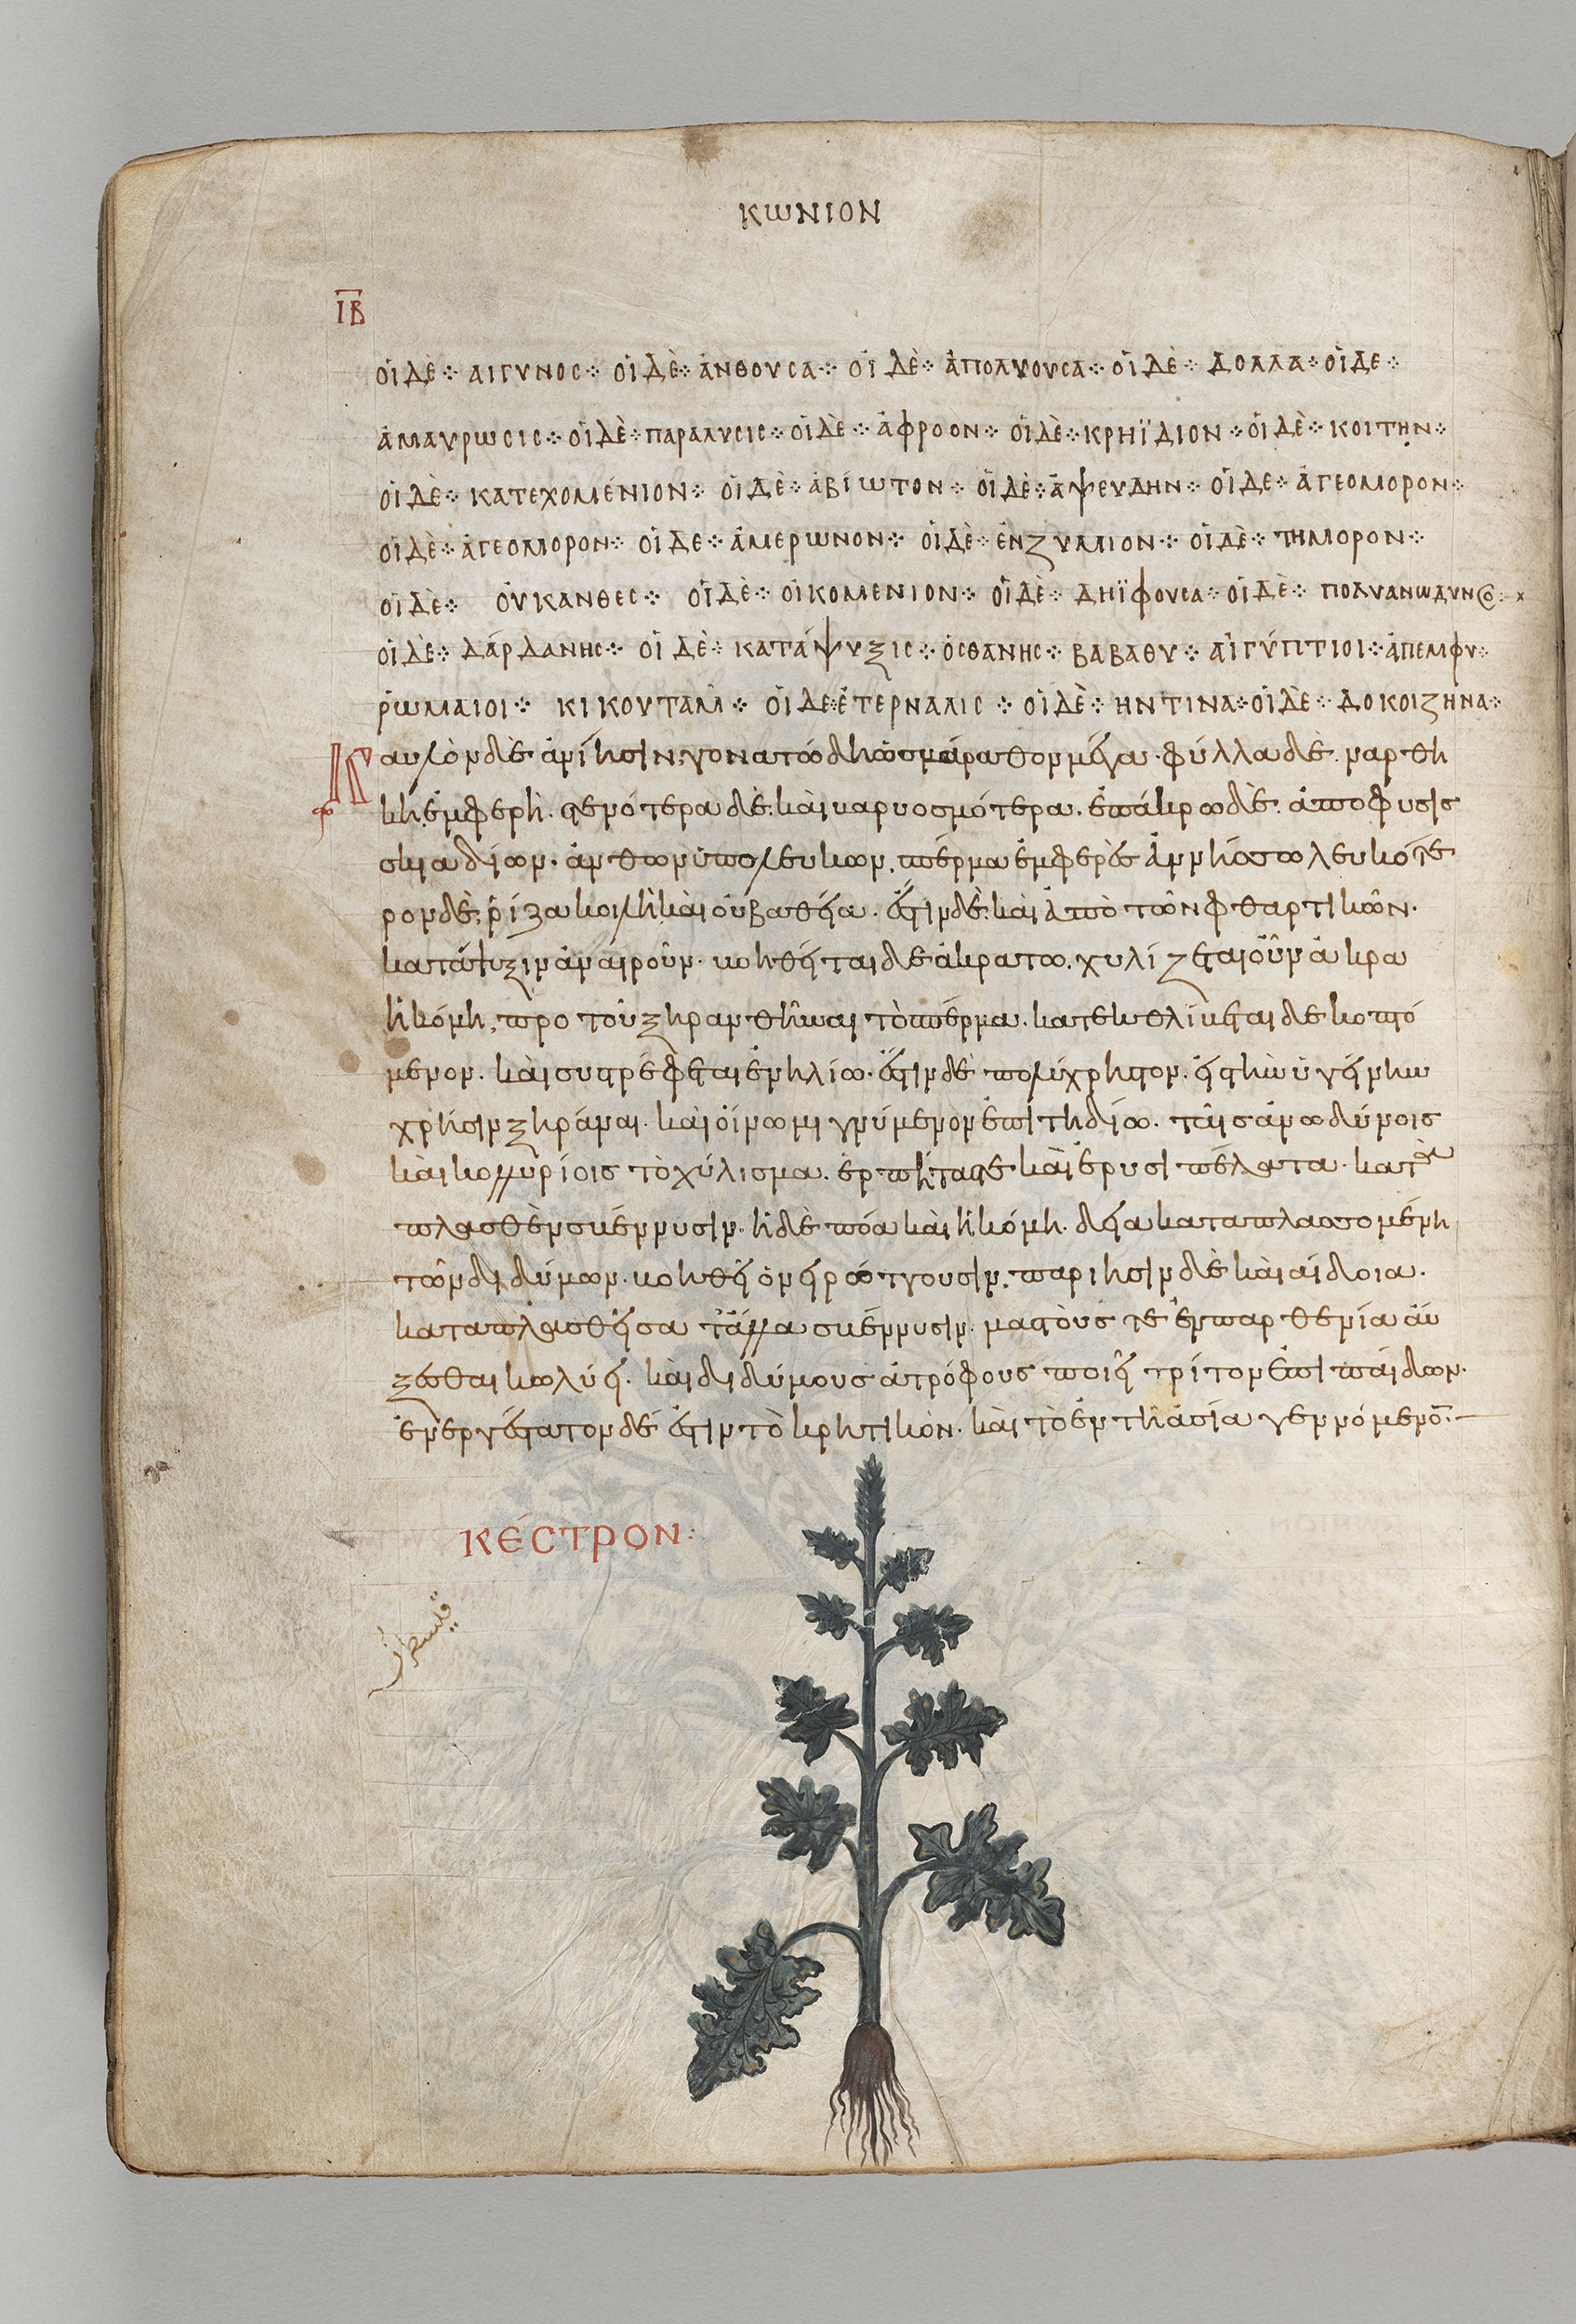 ΚΩΝΙΟΝ
ΙΒ
οἱ δὲ ⁘ αιγυνος ⁘ οἱ δὲ ⁘ ἄνθουσα ⁘ οἱ δὲ ⁘ ἀπολήουσα ⁘ οἱ δὲ ⁘ δολλα ⁘ οἱ δε ⁘
ἀμαυρωσις ⁘ οἱ δὲ ⁘ παραλυσις ⁘ οἱ δὲ ⁘ ἀφροον ⁘ οἱ δὲ ⁘ κρηΐδιον ⁘ οἱ δὲ ⁘ κοιτην ⁘
οἱ δὲ ⁘ κατεχομένιον ⁘ οἱ δὲ ⁘ ἀβίωτον ⁘ οἱ δὲ ⁘ ἀψευδην ⁘ οἱ δε ⁘ ἀγεομορον ⁘
οἱ δὲ ⁘ ἀγεομορον ⁘ οἱ δε ⁘ ἀμερωνον ⁘ οἱ δὲ ⁘ ἐνζυμιον ⁘ οἱ δὲ ⁘ τημορον ⁘
οἱ δὲ ⁘ οὐκανθες ⁘ οἱ δὲ ⁘ οἰκομενιον ⁘ οἱ δὲ ⁘ δηϊφουσα ⁘ οἱ δὲ ⁘ πολυανωδυνος
οἱ δὲ ⁘ δάρδανης ⁘ οἱ δὲ ⁘ κατάψυξις ⁘ ὀσθανης ⁘ βαβαθυ ⁘ αἰγύπτιοι ⁘ ἀπεμφυ ⁘
ῥωμαιοι ⁘ κικουταμ ⁘ οἱ δε ⁘ ἐτερναλις ⁘ οἱ δὲ ⁘ ηντινα ⁘ οἱ δὲ ⁘ δοκοιζηνα ⁘
Καυλὸν δὲ ἀνίησιν γονατώδη ὡς μάραθον μέγα · φύλλα δὲ ναρθη
κι ἐμφερῆ · στενότερα δὲ καὶ καρυοσμότερα · ἐπάκρω δὲ ἀποφυσις
σκιαδίων · ἀνθων ὑπολευκων · σπέρμα ἐμφερὲς ἀννήσσω λευκότε
ρον δέ · ῥίζα κοιλὴ καὶ οὐ βαθεῖα · ἔστιν δὲ καὶ ἀπὸ τῶν φθαρτικῶν ·
κατάψυξιν ἀναιροῦν · βοηθεῖται δὲ ἀκρατω · χυλίζεται οὖν ἀκρα
ἡ κόμη, προ τοῦ ξηρανθῆναι τὸ σπέρμα · κατεκθλίβεται δε κοπτό
μενον · καὶ συστρέφεται ἐν ἡλίω · ἔστιν δὲ πολύχρηστον · εἰς τὴν ὑγεινὴν
χρῆσιν ξηράναι · καὶ οἴνω μιγνύμενον ἐπιτηδίω · ταῖς ἀνωδύνοις
καὶ κολλυρίοις τὸ χύλισμα · ἑρπητας τε καὶ ἐρυσιπέλατα · κατα
πλασθὲν σβέννυσιν · ἡ δὲ πόα καὶ ἡ κόμη · λεία καταπλασσομένη
τῶν διδύμων · βοηθεῖ ὀνειρώττουσιν · παριησιν δὲ καὶ αἰδοια ·
καταπλασθεῖσα γάλα σβέννυσιν · μαστοὺς τε ἐν παρθενία αὔ
ξεσθαι κωλύει · καὶ διδύμους ἀτρόφους ποιεῖ τρίτον ἐπι παίδων ·
ἐνεργέστατον δέ ἐστιν τὸ κρητικὸν · καὶ τὸ ἐν τῆ ἀσία γεννόμενον ·
ΚΕΣΤΡΟΝ :
قسطرن